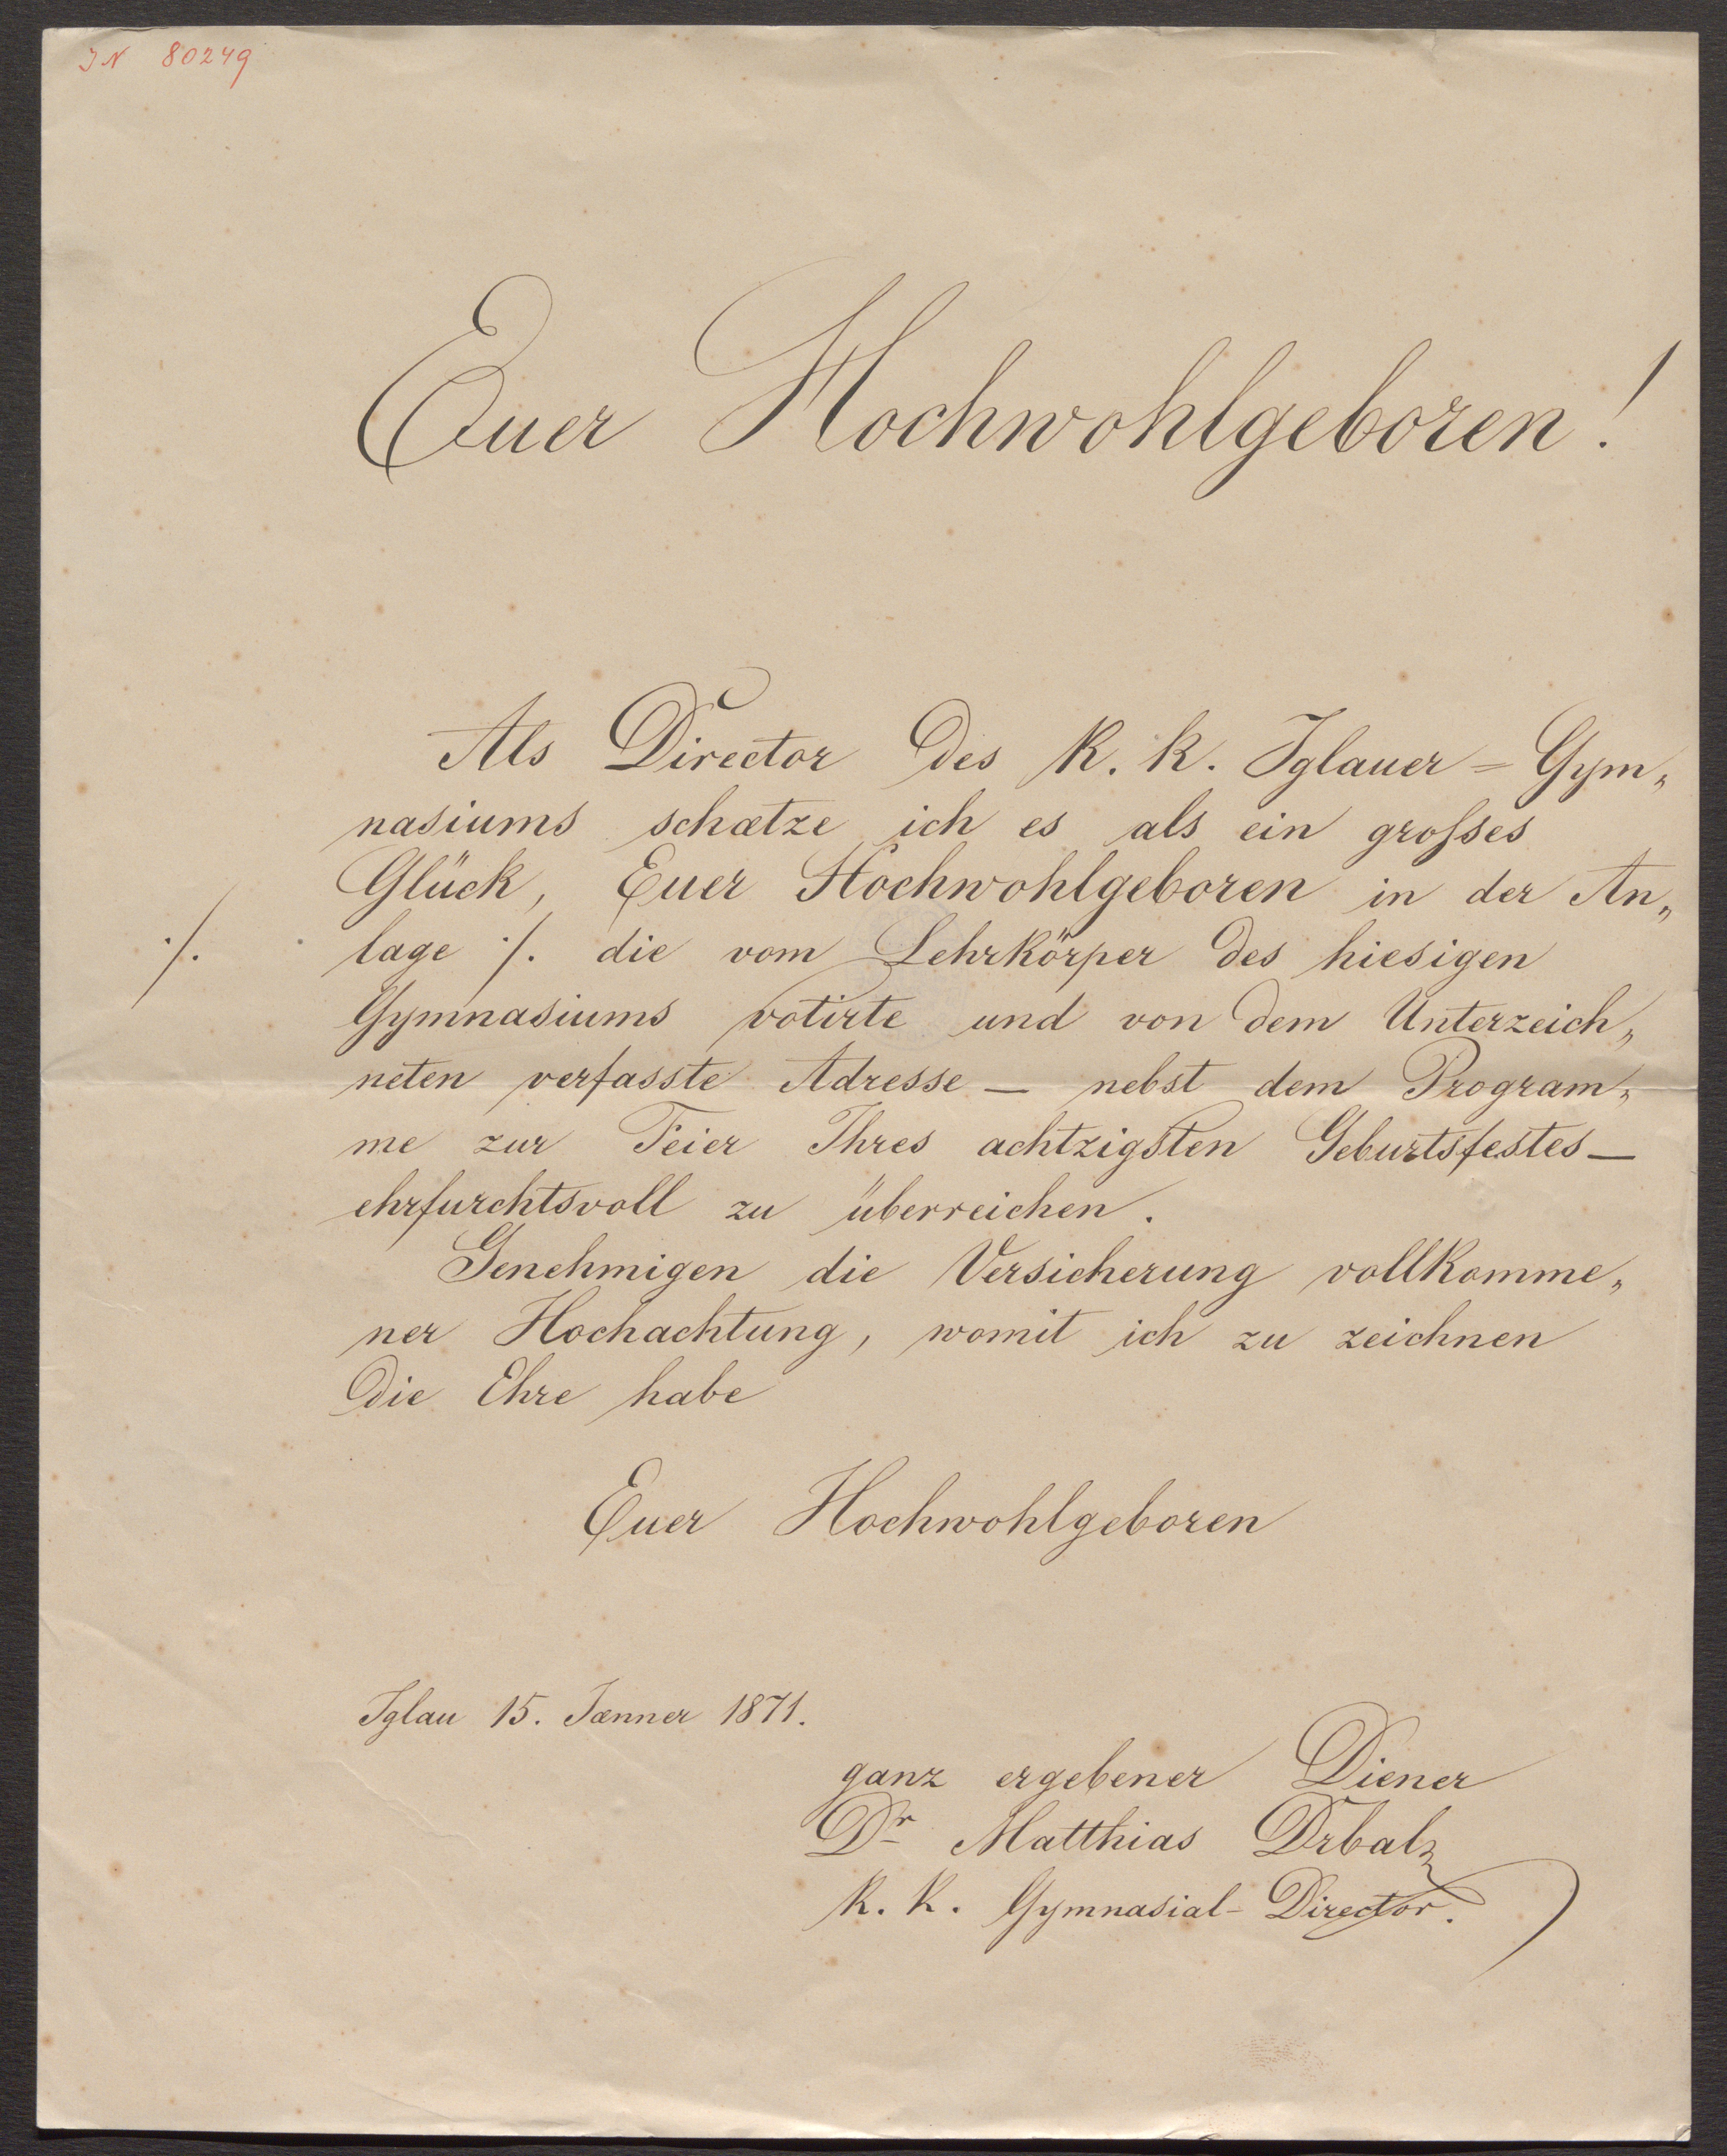 IN 80249
Euer Hochwohlgeboren!
Als Director des k. k. Iglauer=Gym„
nasiums schætze ich es als ein großses
Glück, Euer Hochwohlgeboren in der An„
./. lage ./. die vom Lehrkörper des hiesigen
Gymnasiums votirte und von dem Unterzeich„
neten verfasste Adresse — nebst dem Program„
me zur Feier Ihres achtzigsten Geburtsfestes —
ehrfurchtsvoll zu überreichen.
Genehmigen die Versicherung vollkomme„
ner Hochachtung, womit ich zu zeichnen
die Ehre habe
Euer Hochwohlgeboren
Iglau 15. Jænner 1871.
ganz ergebener Diener
Dr Matthias Drbal
k. k. Gymnasial-Director.